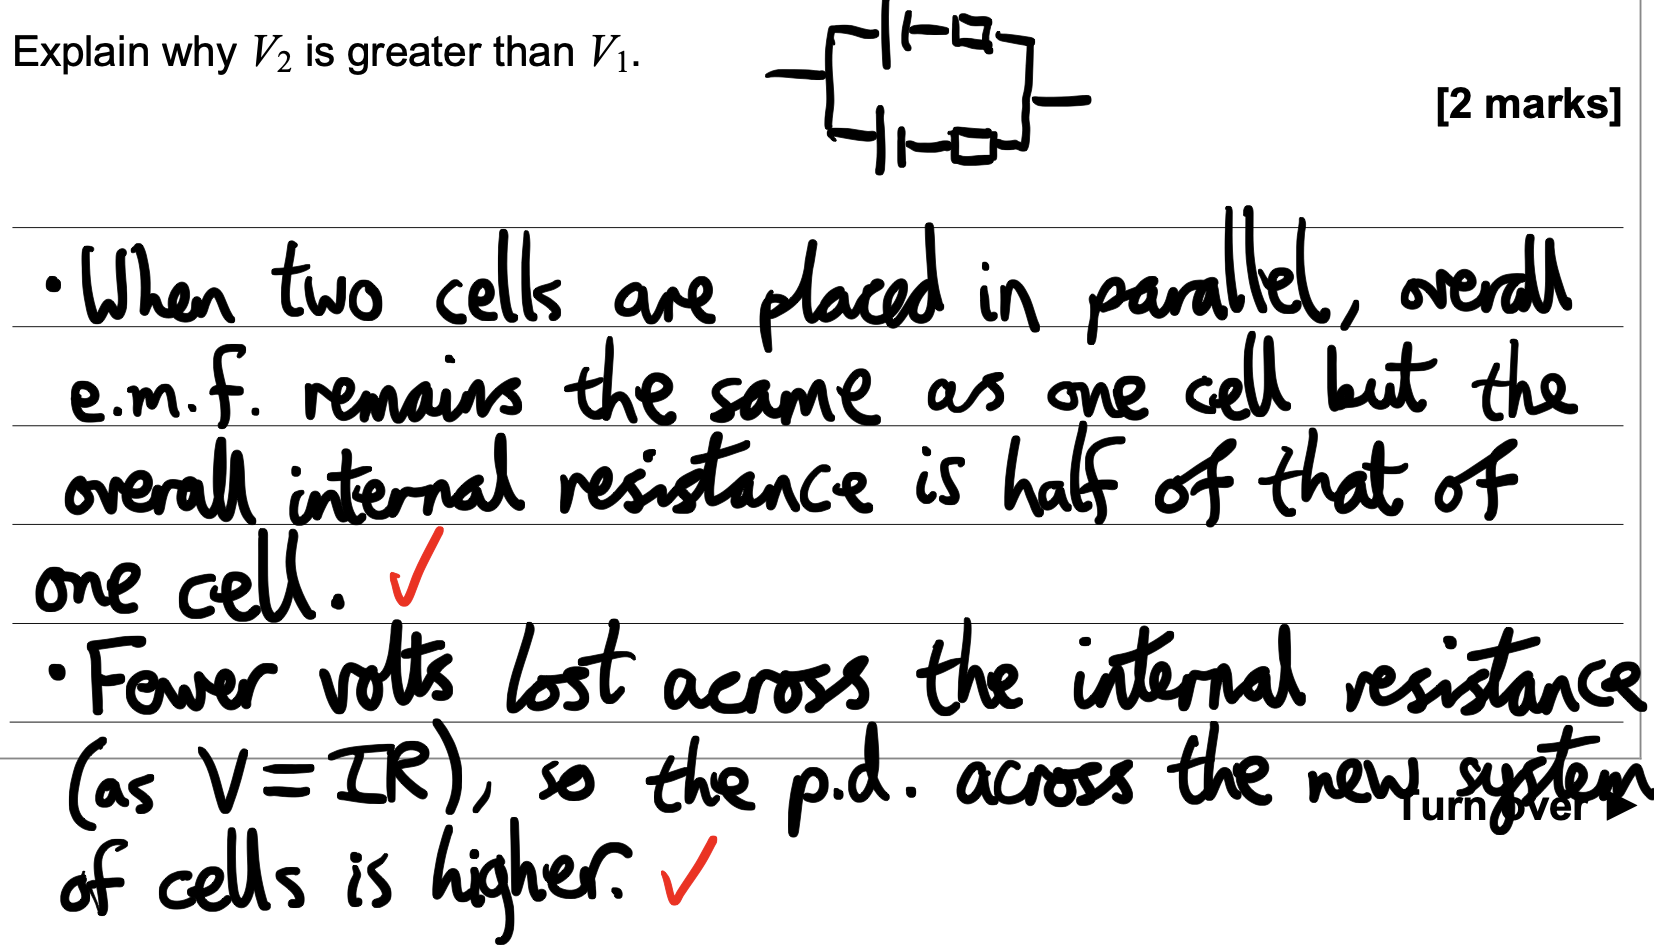 Explain why V₂ is greater than V₁.
[2 marks]
• When two cells are placed in parallel, overall
e.m.f. remains the same as one cell but the
overall internal resistance is half of that of
one cell. ✓
• Fewer volts lost across the internal resistance
(as V=IR), so the p.d. across the new system
Turn over ►
of cells is higher. ✓